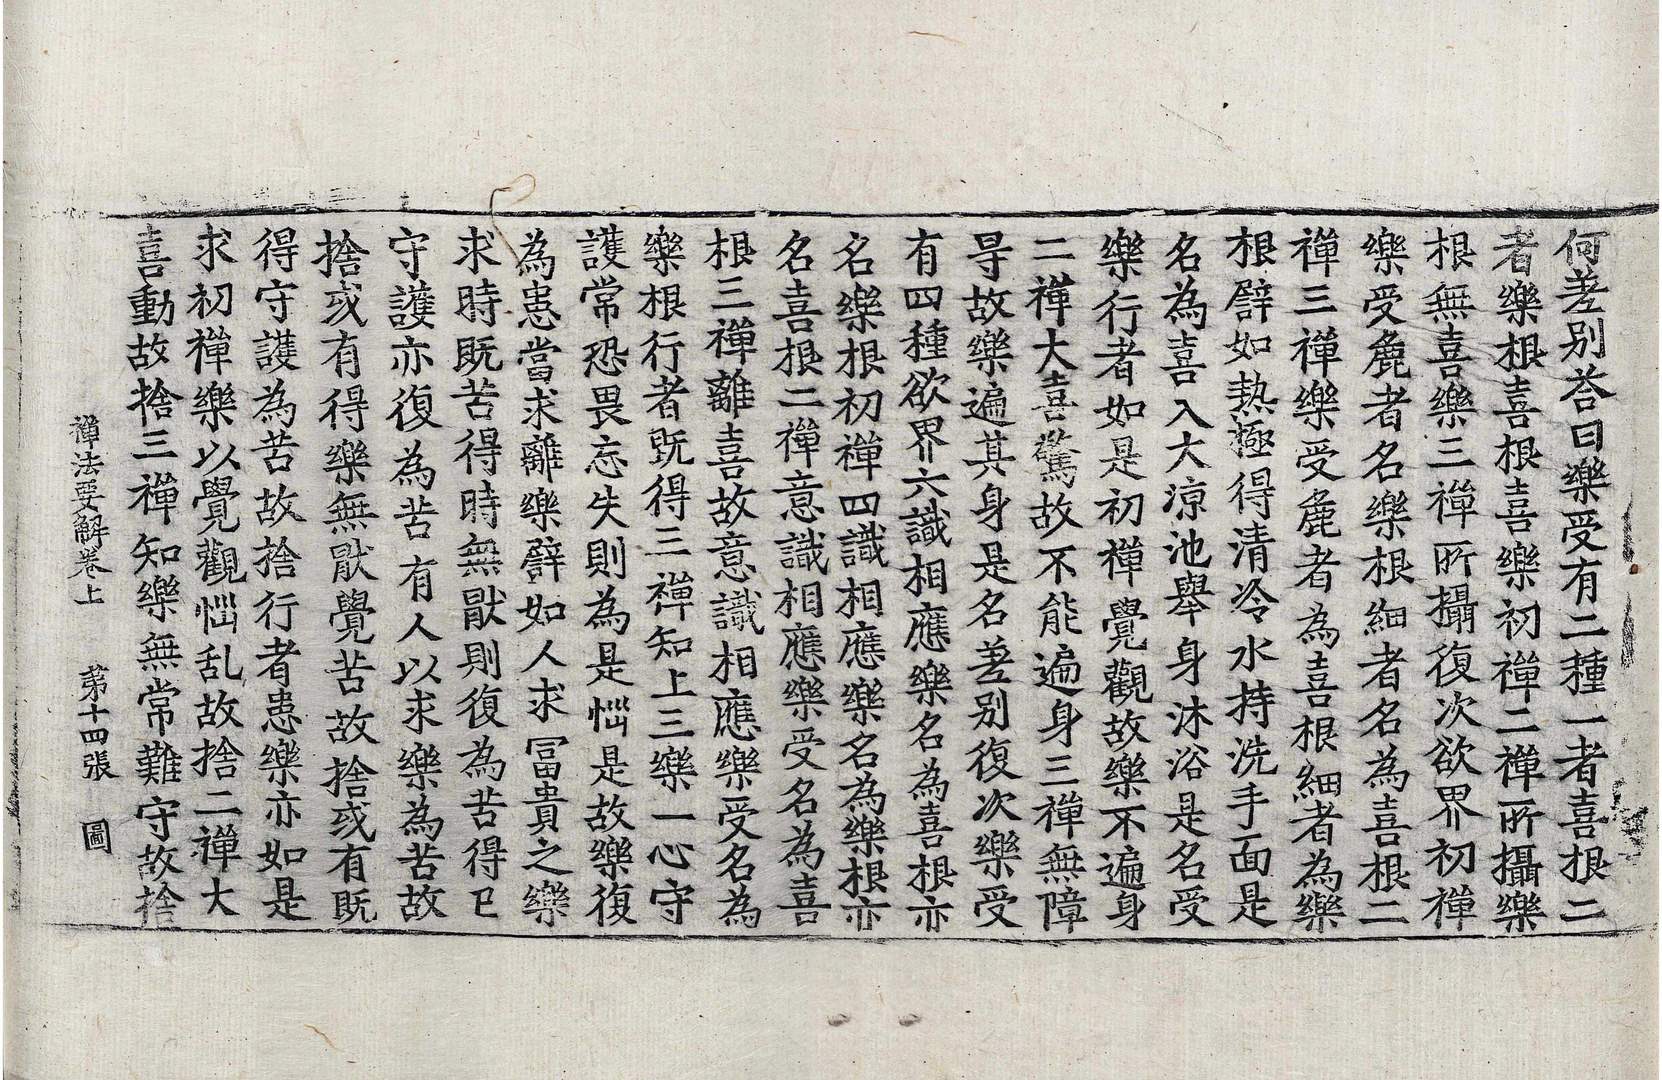 何差别荅曰樂受有二種一者喜根二
者樂根喜根喜樂初禪二禪所攝樂
根無喜樂三禪所攝復次欲界初禪
樂受麁者名樂根細者名為喜根二
禪三禪樂受麁者為喜根細者為樂
根譬如熱極得清冷水持洗手面是
名為喜入大涼池舉身沐浴是名受
樂行者如是初禪覺觀故樂不遍身
二禪大喜驚故不能遍身三禪無障
㝵故樂遍其身是名差别復次樂受
有四種欲界六識相應樂名為喜根亦
名樂根初禪四識相應樂名為樂根亦
名喜根二禪意識相應樂受名為喜
根三禪離喜故意識相應樂受名為
樂根行者既得三禪知上三樂一心守
護常恐畏忘失則為是惱是故樂復
為患當求離樂譬如人求冨貴之樂
求時既苦得時無猒則復為苦得已
守護亦復為苦有人以求樂為苦故
捨或有得樂無猒覺苦故捨或有既
得守護為苦故捨行者患樂亦如是
求初禪樂以覺觀惱乱故捨二禪大
喜動故捨三禪知樂無常難守故捨
禪法要解卷上 第十四張 圖